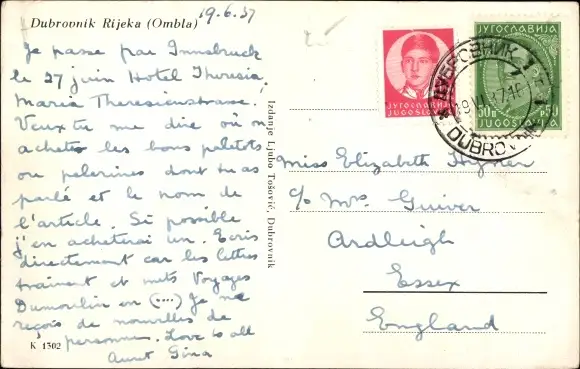 Dubrovnik Rijeka (Ombla)
19.6.37
Je passe par Innsbruck
le 27 juin Hotel Theresia,
Maria Theresienstrasse.
Veux tu me dire où on
achete les bons paletots
ou pelerines dont tu as
parlé et le nom de
l'article. Si possible
j'en acheterai un. Ecris
directement car les lettres
trainent et mets Voyages
Dumoulin en (....) Je ne
reçois de nouvelles de
personne. Love to all
Aunt Gina
K 1302
Izdanje Ljubo Tošović, Dubrovnik
ЈУГОСЛАВИЈА
JUGOSLAVIJA
ЈУГОСЛАВИЈА
JUGOSLAVIJA
ДУБРОВНИК
DUBROVNIK
Miss Elizabeth
c/o Mrs. Guiver
Ardleigh
Essex
England